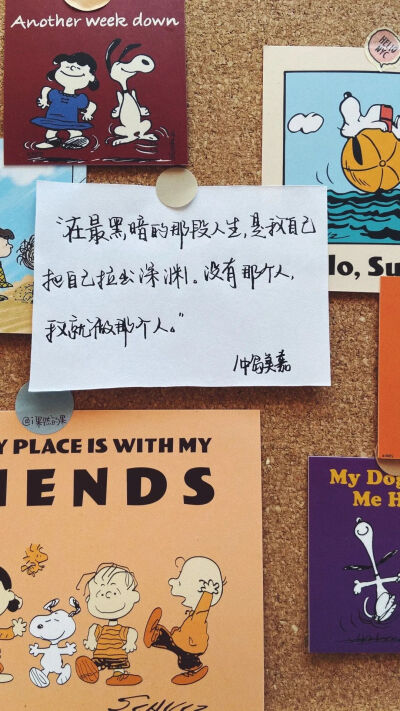 Another week down
HELLO
NYC
“在最黑暗的那段人生,是我自己
把自己拉出深渊。没有那个人,
我就做那个人。”
中岛美嘉
lo, Su
@i果然的果
Y PLACE IS WITH MY
IENDS
My Dog
Me H
SCHULZ